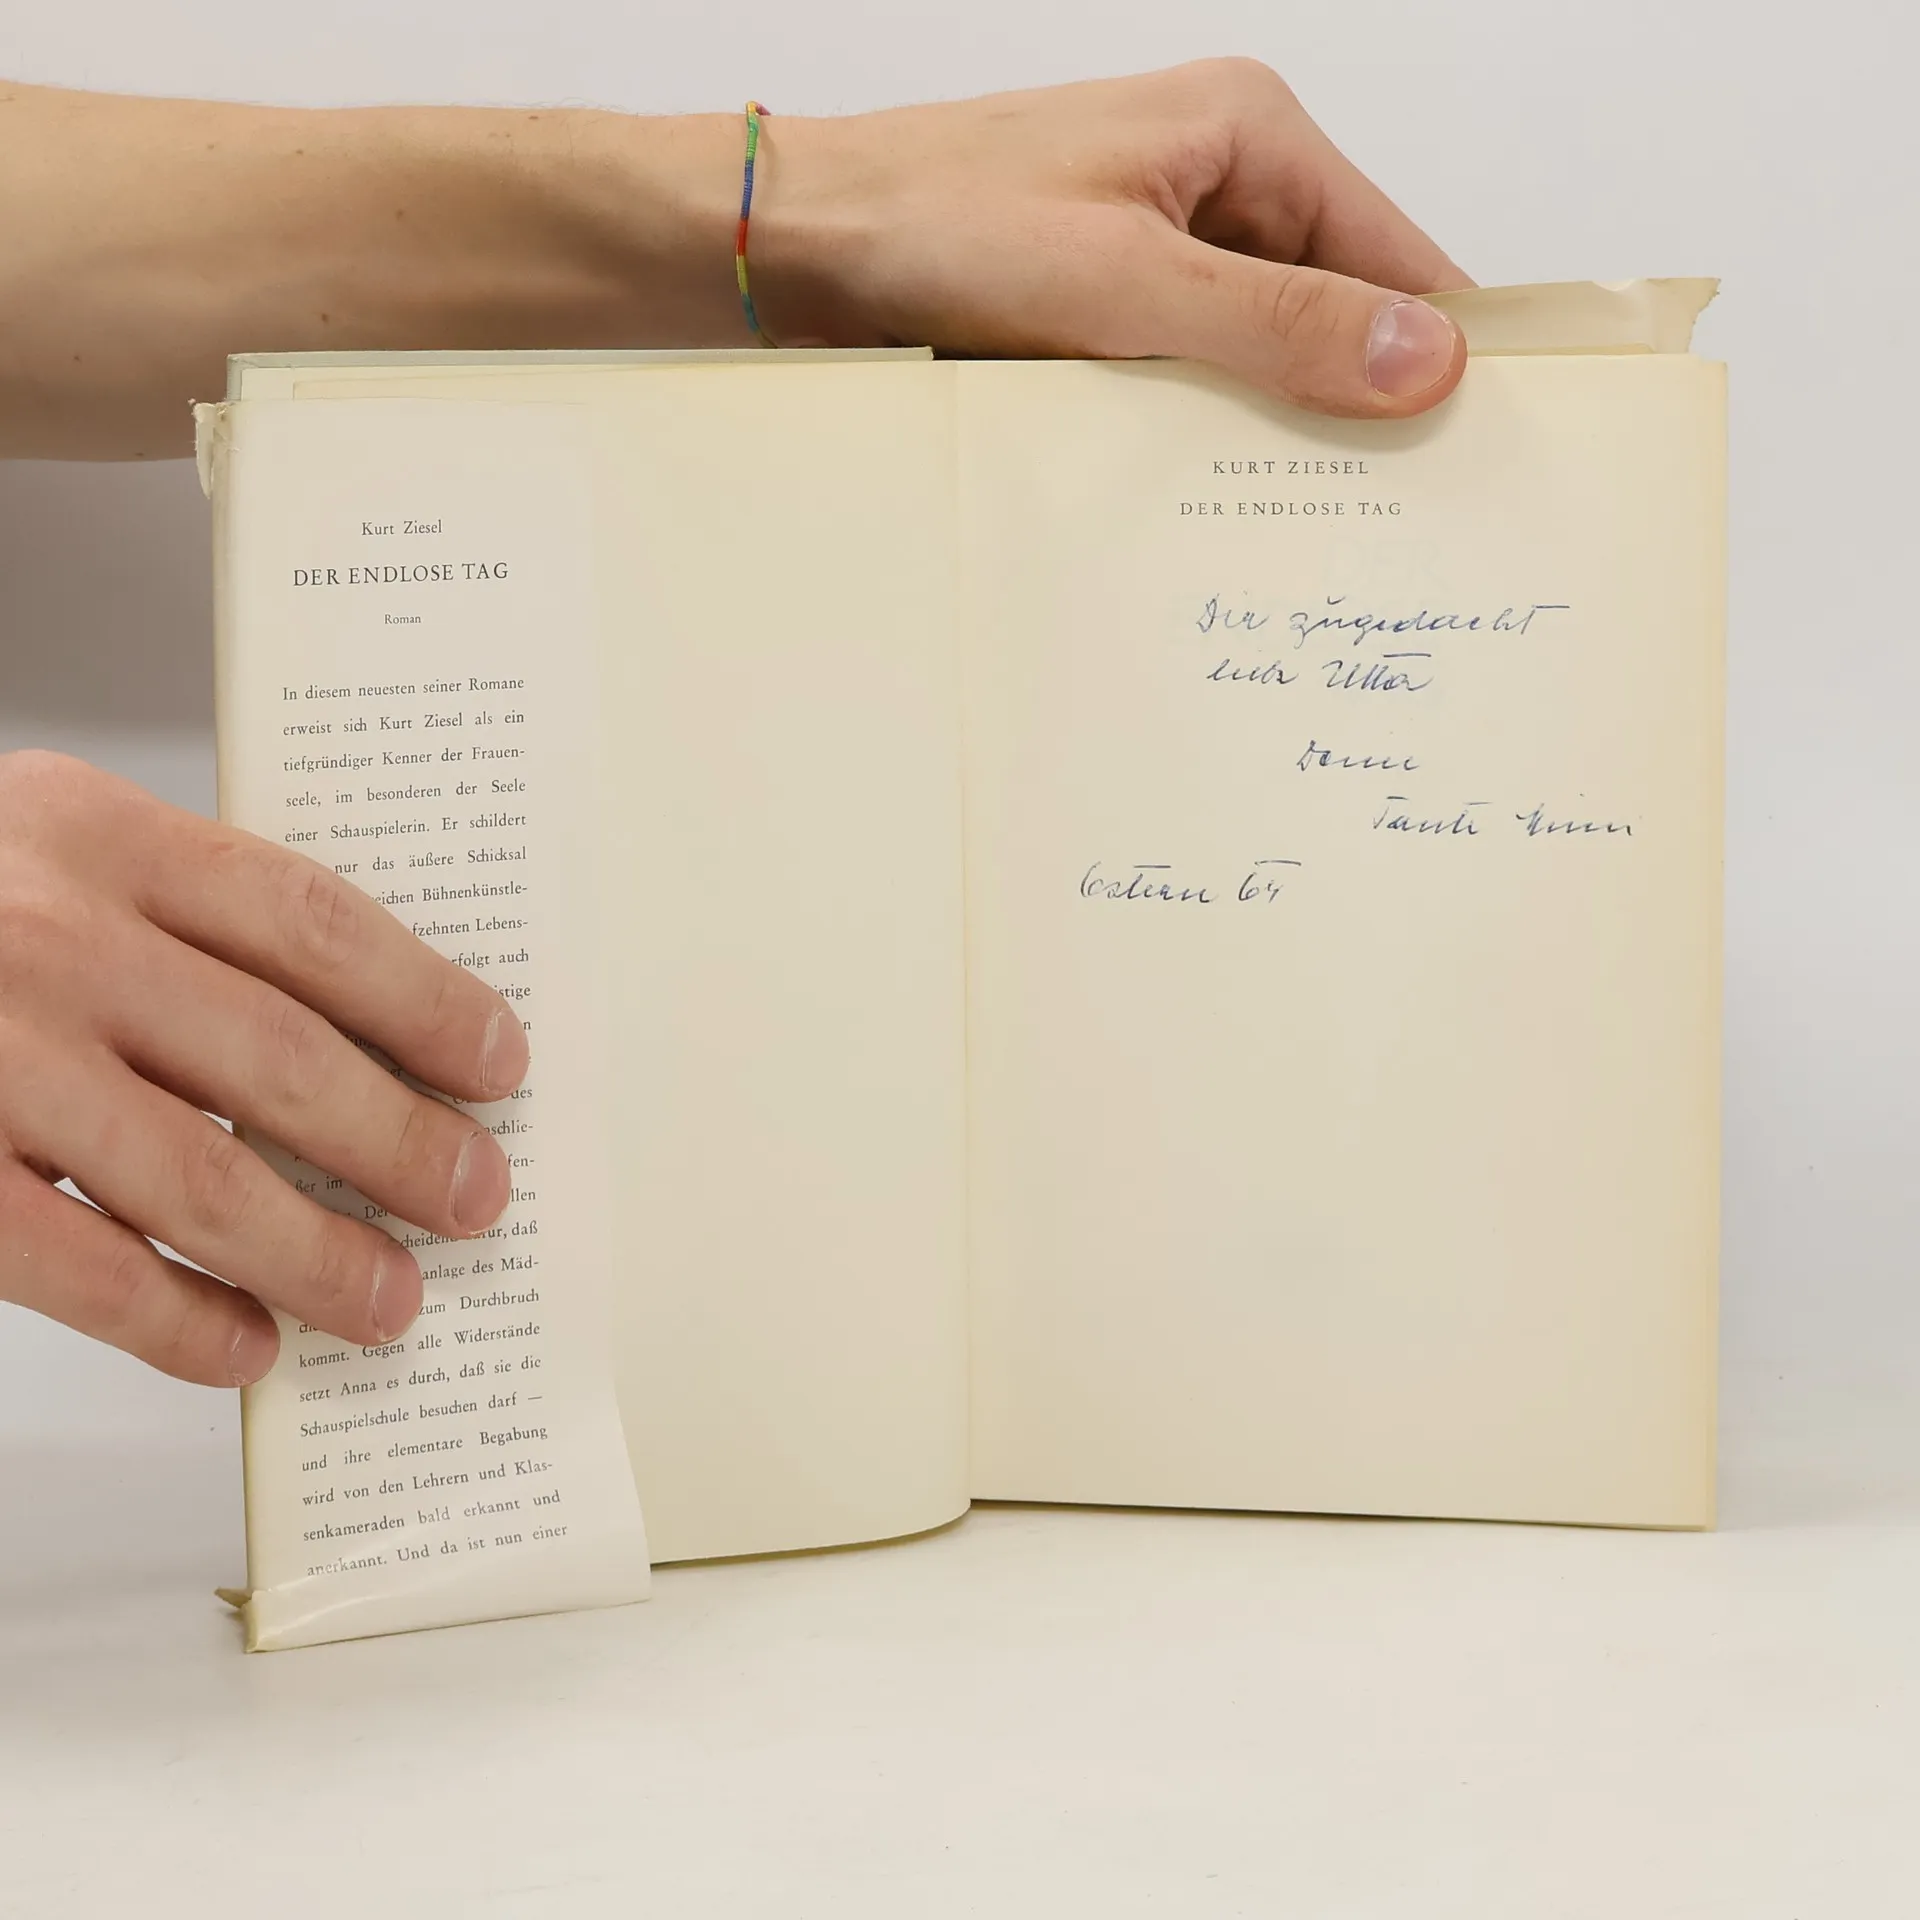 Kurt Ziesel
DER ENDLOSE TAG
Roman
In diesem neuesten seiner Romane
erweist sich Kurt Ziesel als ein
tiefgründiger Kenner der Frauen-
seele, im besonderen der Seele
einer Schauspielerin. Er schildert
nur das äußere Schicksal
reichen Bühnenkünstle-
fzehnten Lebens-
rfolgt auch
istige
n
des
nschlie-
fen-
ßer im llen
De
cheidend dafür, daß
anlage des Mäd-
zum Durchbruch
kommt. Gegen alle Widerstände
setzt Anna es durch, daß sie die
Schauspielschule besuchen darf —
und ihre elementare Begabung
wird von den Lehrern und Klas-
senkameraden bald erkannt und
anerkannt. Und da ist nun einer
KURT ZIESEL
DER ENDLOSE TAG
Dir zugedacht
liebe Utta
Deine
Tante Minni
Ostern 64